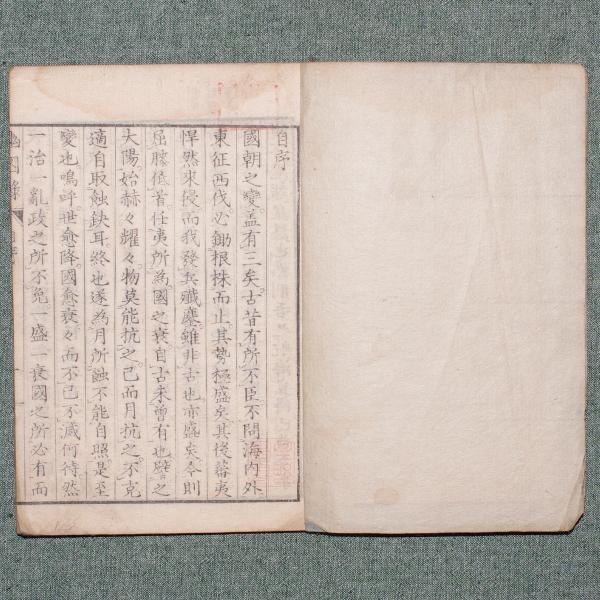 自序
國朝之變蓋有三矣古昔有所不臣不問海內外
東征西伐必鋤根株而止其勢極盛矣其後蕃夷
悍然來侵而我發兵殲塵雖非古也亦盛矣今則
屈膝低首任夷所為國之衰自古未曾有也譬之
大陽始赫々耀々物莫能抗之已而月抗之不克
適自取蝕缺耳終也遂為月所蝕不能自照是至
變也嗚呼世愈降國愈衰々而不已不滅何待然
一治一亂政之所不免一盛一衰國之所必有而